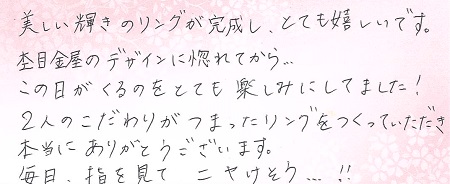 美しい輝きのリングが完成し、とても嬉しいです。
杢目金屋のデザインに惚れてから…
この日がくるのをとても楽しみにしてました！
2人のこだわりがつまったリングをつくっていただき
本当にありがとうございます。
毎日、指を見てニヤけそう…!!